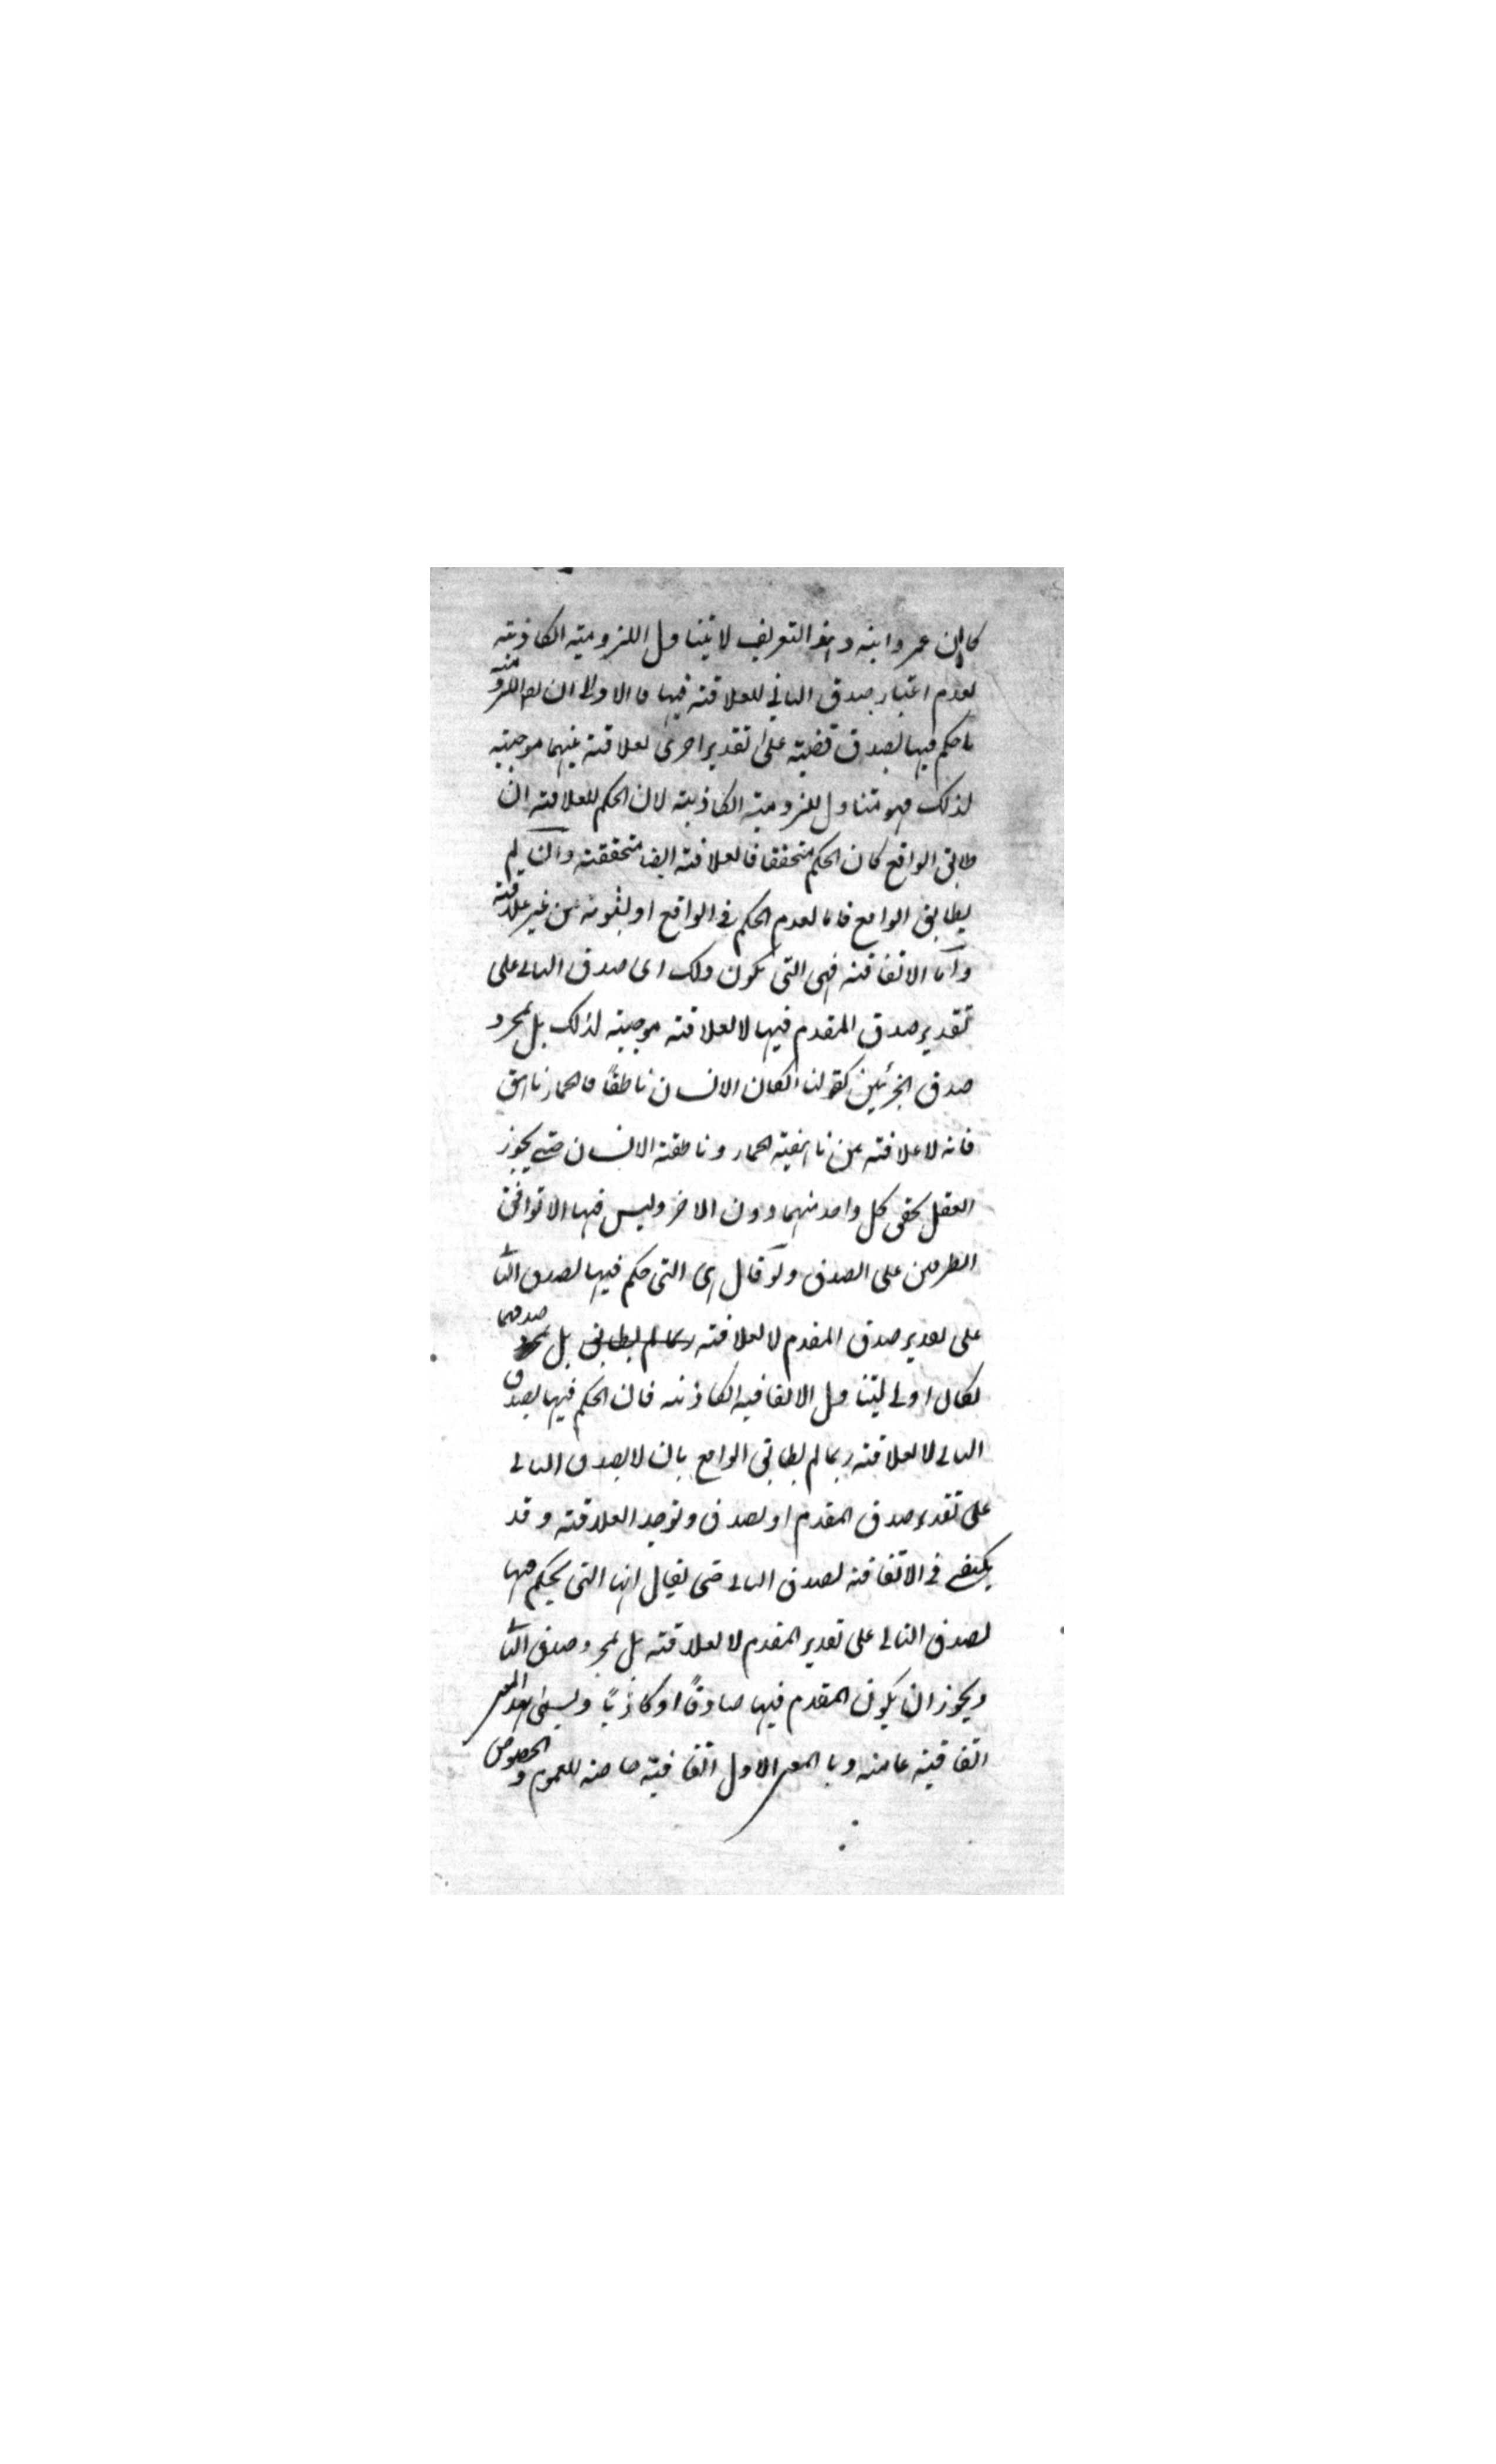 كان عمرو ابنه وهذا التعريف لا يتناول اللزومية الكاذبة
لعدم اعتبار صدق التالي للعلاقة فيها فالاولى ان يقال اللزومية
ما حكم فيها بصدق قضية على تقدير اخرى لعلاقة بينهما موجبة
لذلك فهو متناول للزومية الكاذبة لان الحكم للعلاقة ان
طابق الواقع كان الحكم متحققا فالعلاقة ايضا متحققة وان لم
يطابق الواقع فاما لعدم الحكم في الواقع او لثبوته من غير علاقة
واما الاتفاقية فهي التي يكون ذلك اي صدق التالي على
تقدير صدق المقدم فيها لا لعلاقة موجبة لذلك بل لمجرد
صدق الجزئين كقولنا ان كان الانسان ناطقاً فالحمار ناهق
فانه لا علاقة بين ناهقية الحمار وناطقية الانسان حتى يجوز
العقل تحقق كل واحد منهما دون الاخر وليس فيها الا توافق
الطرفين على الصدق ولو قال هي التي حكم فيها بصدق التالي
على تقدير صدق المقدم لا لعلاقة ربما لم يطابق بل لمجرد صدقهما
لكان اولى ليتناول الاتفاقية الكاذبة فان الحكم فيها بصدق
التالي لا لعلاقة ربما لم يطابق الواقع بان لا يصدق التالي
على تقدير صدق المقدم او يصدق وتوجد العلاقة وقد
يكتفى في الاتفاقية بصدق التالي حتى يقال انها التي يحكم فيها
بصدق التالي على تقدير المقدم لا لعلاقة بل لمجرد صدق التالي
ويجوز ان يكون المقدم فيها صادقاً او كاذباً ويسمى بهذا المعنى
اتفاقية عامة وبالمعنى الاول اتفاقية خاصة للعموم والخصوص